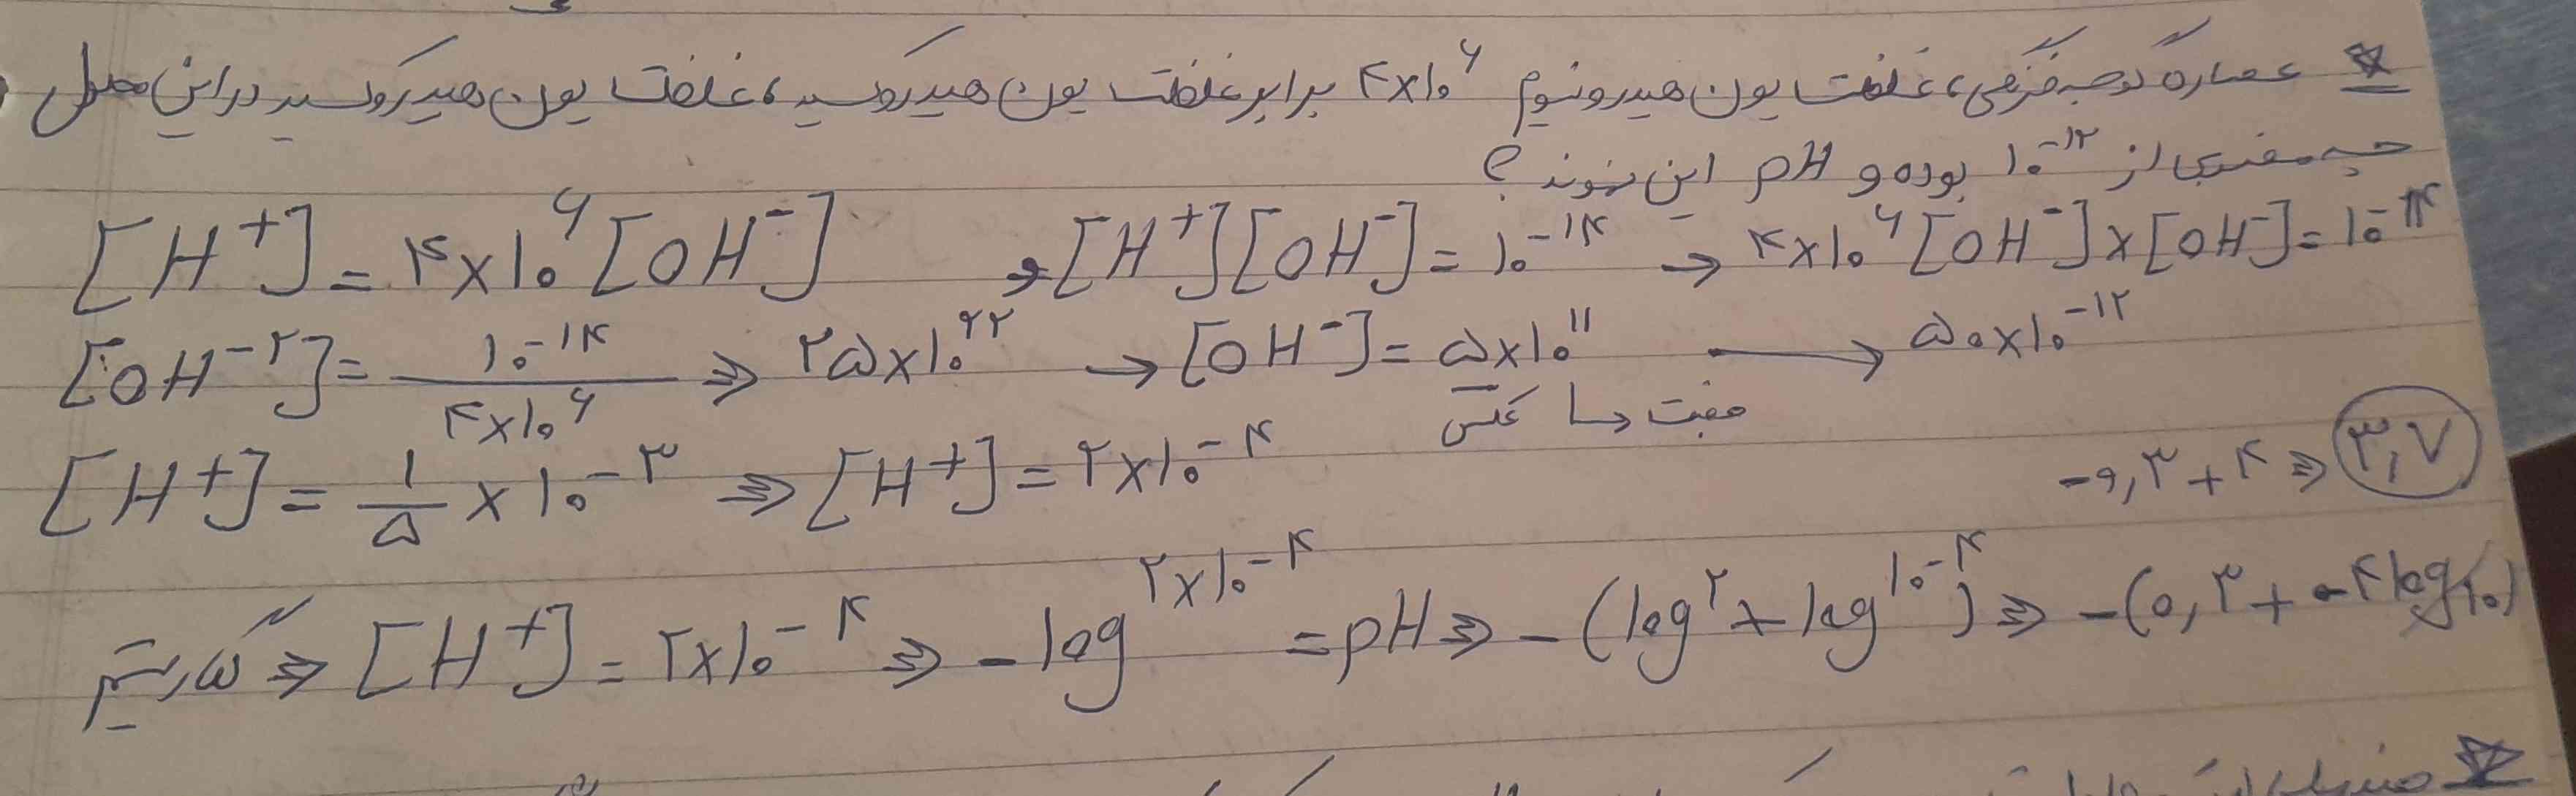 عصاره گوجه فرنگی، غلظت یون هیدرونیوم ۴×۱۰^۶ برابر غلظت یون هیدروکسید، غلظت یون هیدروکسید در این محلول
چه مضربی از ۱۰^-۱۲ بوده و pH این نمونه؟
[H^+] = ۴×۱۰^۶ [OH^-] و [H^+][OH^-] = ۱۰^-۱۴ → ۴×۱۰^۶ [OH^-]×[OH^-] = ۱۰^-۱۴
[OH^-۲] = ۱۰^-۱۴ / ۴×۱۰^۶ ⇒ ۲۵×۱۰^۲۲ → [OH^-] = ۵×۱۰^۱۱ → ۵۰×۱۰^-۱۲
عکس
[H^+] = ۱/۵ × ۱۰^-۳ ⇒ [H^+] = ۲×۱۰^-۴ -۰,۳+۴ ⇒ ۳,۷
⇒ [H^+] = ۲×۱۰^-۴ ⇒ -log^۲×۱۰^-۴ = pH ⇒ -(log^۲ + log^۱۰^-۴) ⇒ -(۰,۳ + -۴log۱۰)